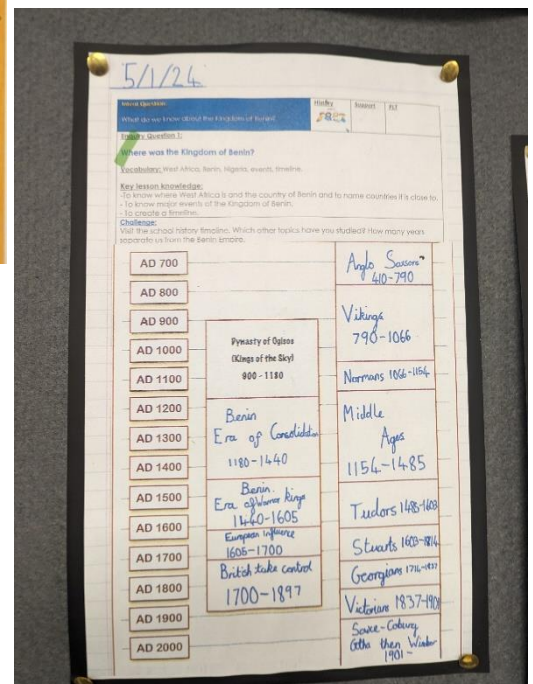 5/1/24
What do we know about the Kingdom of Benin?
History
Support
Enquiry Question 1:
Where was the Kingdom of Benin?
Vocabulary: West Africa, Benin, Nigeria, events, timeline.
Key lesson knowledge:
-To know where West Africa is and the country of Benin and to name countries it is close to.
- To know major events of the Kingdom of Benin.
- To create a timeline.
Challenge:
Visit the school history timeline. Which other topics have you studied? How many years
separate us from the Benin Empire.
AD 700
AD 800
AD 900
AD 1000
AD 1100
AD 1200
AD 1300
AD 1400
AD 1500
AD 1600
AD 1700
AD 1800
AD 1900
AD 2000
Dynasty of Ogisos
(Kings of the Sky)
900 - 1180
Benin
Era of Consolidation
1180-1440
Benin.
Era of Warrior Kings
1440-1605
European influence
1605-1700
British take control
1700-1897
Anglo Saxons
410-790
Vikings
790-1066
Normans 1066-1154
Middle
Ages
1154-1485
Tudors 1485-1603
Stuarts 1603-
Georgians 1714-1837
Victorians 1837-1901
then
1901-